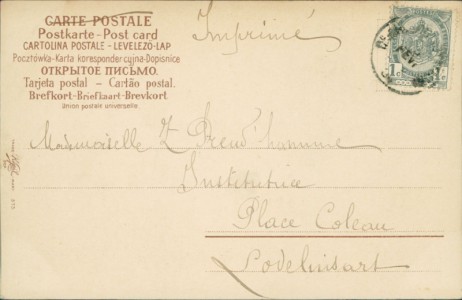 CARTE POSTALE
Postkarte - Post card
CARTOLINA POSTALE - LEVELEZO-LAP
Pocztówka-Karta korespondencyjna-Dopisnice
ОТКРЫТОЕ ПИСЬМО.
Tarjeta postal - Cartão postal.
Brefkort-Briefkaart-Brevkort.
Union postale universelle.
Imprimé
1
Mademoiselle Z Dreud'homme
Institutrice
Place Coleau
Lodelinsart